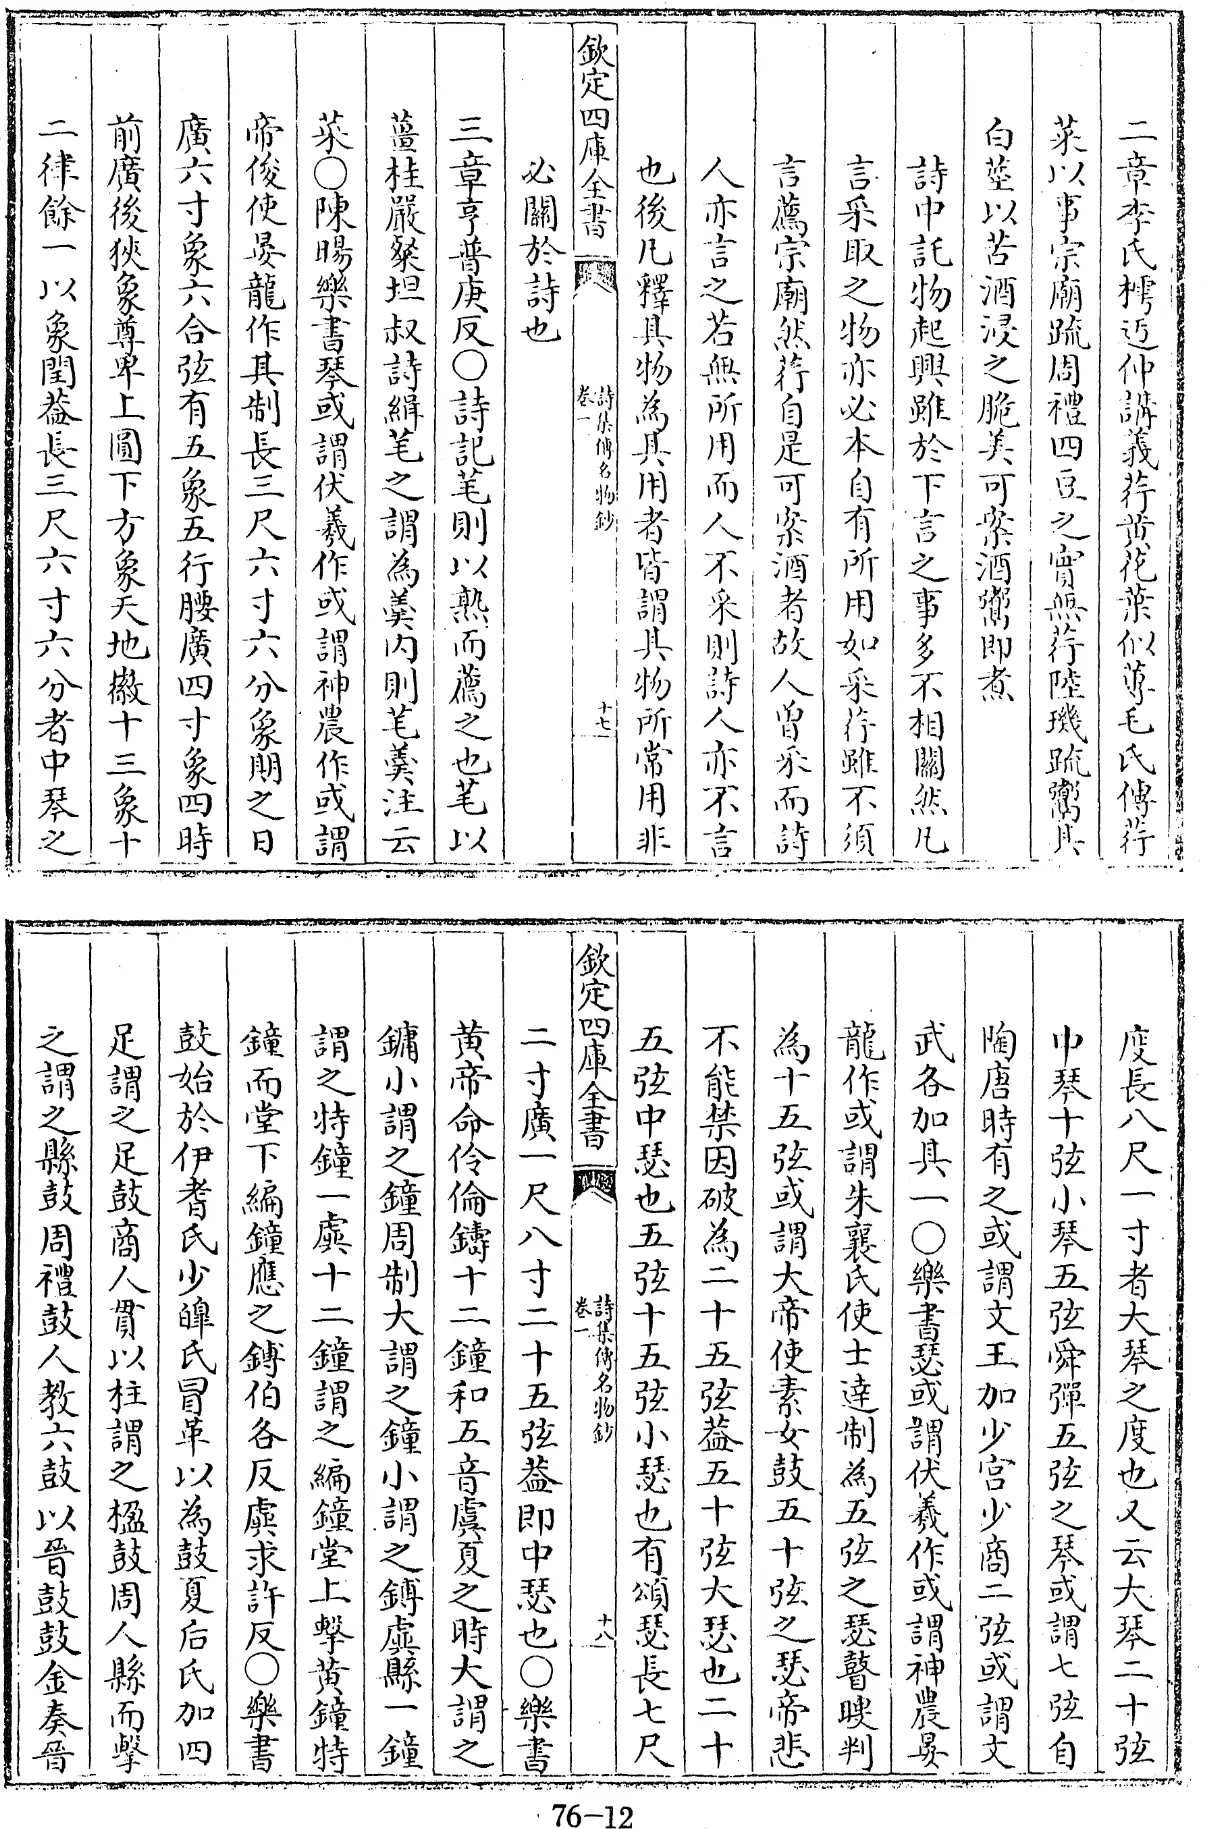 二章李氏樗迃仲講義荇黄花葉似蓴毛氏傳荇
菜以事宗廟䟽周禮四豆之實無荇陸璣䟽鬻其
白莖以苦酒浸之脆美可案酒鬻即煮
詩中託物起興雖於下言之事多不相關然凡
言采取之物亦必本自有所用如采荇雖不須
言薦宗廟然荇自是可案酒者故人曾采而詩
人亦言之若無所用而人不采則詩人亦不言
也後凡釋其物為其用者皆謂其物所常用非
欽定四庫全書
詩集傳名物鈔
卷一
十七
必關於詩也
三章亨普庚反○詩記芼則以熟而薦之也芼以
薑桂嚴粲坦叔詩緝芼之謂為羮内則芼羮注云
菜○陳暘樂書琴或謂伏羲作或謂神農作或謂
帝俊使晏龍作其制長三尺六寸六分象期之日
廣六寸象六合弦有五象五行腰廣四寸象四時
前廣後狹象尊卑上圓下方象天地徽十三象十
二律餘一以象閏葢長三尺六寸六分者中琴之
度長八尺一寸者大琴之度也又云大琴二十弦
中琴十弦小琴五弦舜彈五弦之琴或謂七弦自
陶唐時有之或謂文王加少宫少商二弦或謂文
武各加其一○樂書瑟或謂伏羲作或謂神農晏
龍作或謂朱襄氏使士達制為五弦之瑟瞽瞍判
為十五弦或謂大帝使素女鼓五十弦之瑟帝悲
不能禁因破為二十五弦葢五十弦大瑟也二十
五弦中瑟也五弦十五弦小瑟也有頌瑟長七尺
欽定四庫全書
詩集傳名物鈔
卷一
十八
二寸廣一尺八寸二十五弦葢即中瑟也○樂書
黄帝命伶倫鑄十二鐘和五音虞夏之時大謂之
鏞小謂之鐘周制大謂之鐘小謂之鎛虡縣一鐘
謂之特鐘一虡十二鐘謂之編鐘堂上擊黄鐘特
鐘而堂下編鐘應之鎛伯各反虡求許反○樂書
鼓始於伊耆氏少皥氏冒革以為鼓夏后氏加四
足謂之足鼓商人貫以柱謂之楹鼓周人縣而擊
之謂之縣鼓周禮鼓人教六鼓以晉鼓鼓金奏晉
76-12